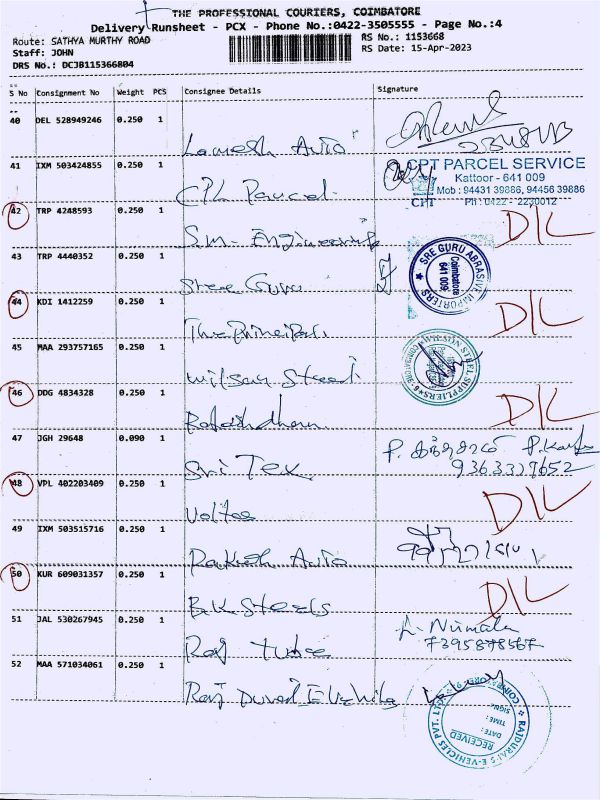 THE PROFESSIONAL COURIERS, COIMBATORE
Delivery Runsheet - PCX - Phone No.:0422-3505555 - Page No.:4
Route: SATHYA MURTHY ROAD RS No.: 1153668
Staff: JOHN RS Date: 15-Apr-2023
DRS No.: DCJB115366804
S No Consignment No Weight PCS Consignee Details Signature
40 DEL 528949246 0.250 1
Lamesh Auto
41 IXM 503424855 0.250 1 CPT PARCEL SERVICE
Kattoor - 641 009
Mob : 94431 39886, 94456 39886
CPT Ph : 0422 - 2230012
CPL Parcel
42 TRP 4248593 0.250 1 DIL
SM- Engineering
43 TRP 4440352 0.250 1 SRE GURU ABRASIVE IMPORTERS Coimbatore 641 009
Shree Guru
44 KDI 1412259 0.250 1 DIL
The Principal
45 MAA 293757165 0.250 1 WILSON STEEL SUPPLIERS
Wilson Steel
46 DDG 4834328 0.250 1 DIL
47 JGH 29648 0.090 1
9363327652
Sri Tex
48 VPL 402203409 0.250 1 DIL
Voltas
49 IXM 503515716 0.250 1
Rakesh Auto
50 KUR 609031357 0.250 1 DIL
B.K Steels
51 JAL 530267945 0.250 1 Nirmala
7395878567
Raj Tube
52 MAA 571034061 0.250 1
Raj Durai E Vehile
RAJDURAI'S E-VEHICLES PVT. LTD.
SIGN:
TIME:
DATE:
RECEIVED